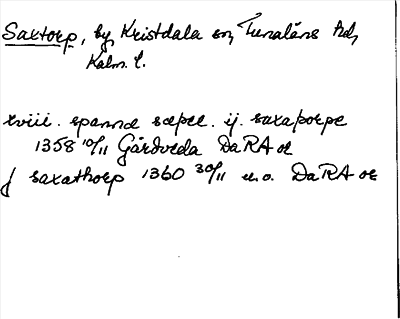 Saxtorp, by, Kristdala sn, Tunaläns hd,
Kalm. l.
xviii. spannæ sæpæ. ij. saxaþorpe
1358 10/11 Gårdveda DaRA or
j saxathorp 1360 30/11 u.o. DaRA or